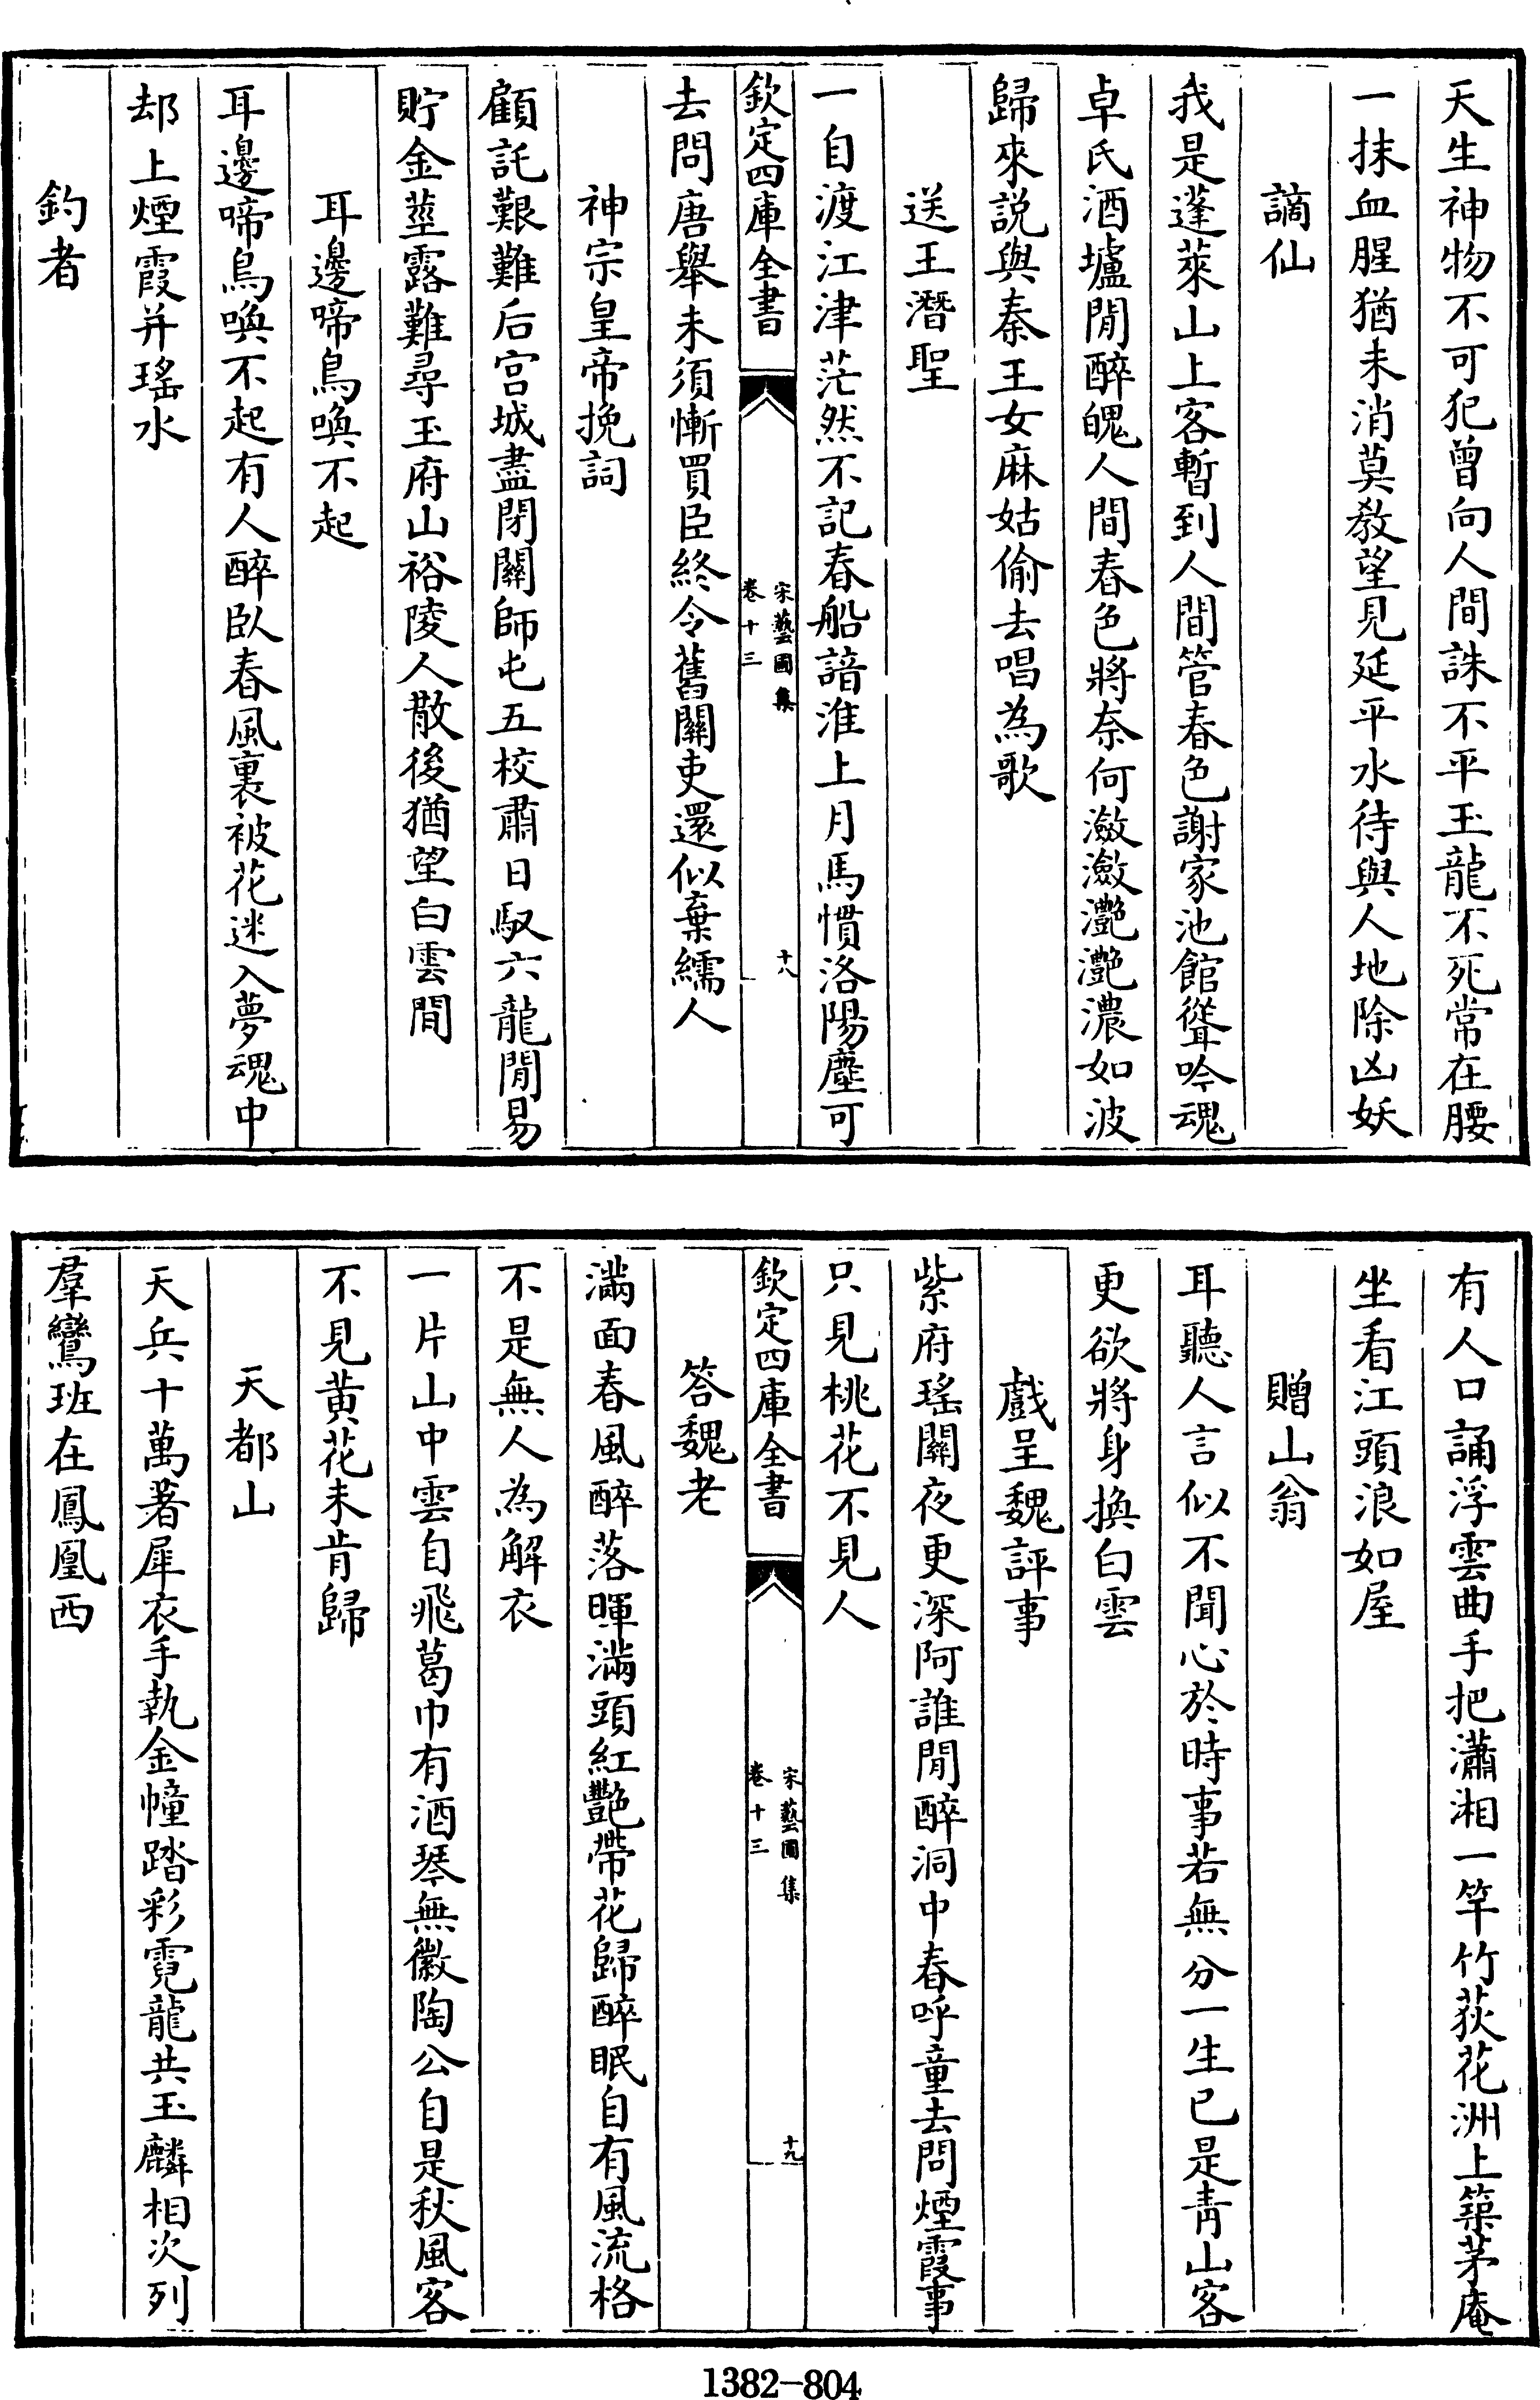 天生神物不可犯曾向人間誅不平玉龍不死常在腰
一抹血腥猶未消莫教望見延平水待與人地除凶妖
謫仙
我是蓬萊山上客暫到人間管春色謝家池館聳吟魂
卓氏酒壚閒醉魄人間春色將奈何瀲瀲灔灔濃如波
歸來説與秦王女麻姑偷去唱為歌
送王潛聖
一自渡江津茫然不記春船諳淮上月馬慣洛陽塵可
欽定四庫全書
宋藝圃集
卷十三
十八
去問唐舉未須慚買臣終令舊關吏還似棄繻人
神宗皇帝挽詞
顧託艱難后宫城盡閉關師屯五校肅日馭六龍閒易
貯金莖露難尋玉府山裕陵人散後猶望白雲間
耳邊啼鳥喚不起
耳邊啼鳥喚不起有人醉臥春風裏被花迷入夢魂中
却上煙霞并瑤水
釣者
有人口誦浮雲曲手把瀟湘一竿竹荻花洲上築茅庵
坐看江頭浪如屋
贈山翁
耳聽人言似不聞心於時事若無分一生已是青山客
更欲將身換白雲
戲呈魏評事
紫府瑤關夜更深阿誰閒醉洞中春呼童去問煙霞事
只見桃花不見人
欽定四庫全書
宋藝圃集
卷十三
十九
答魏老
滿面春風醉落暉滿頭紅艷帶花歸醉眠自有風流格
不是無人為解衣
一片山中雲自飛葛巾有酒琴無徽陶公自是秋風客
不見黃花未肯歸
天都山
天兵十萬著犀衣手執金幢踏彩霓龍共玉麟相次列
羣鸞班在鳳凰西
1382-804